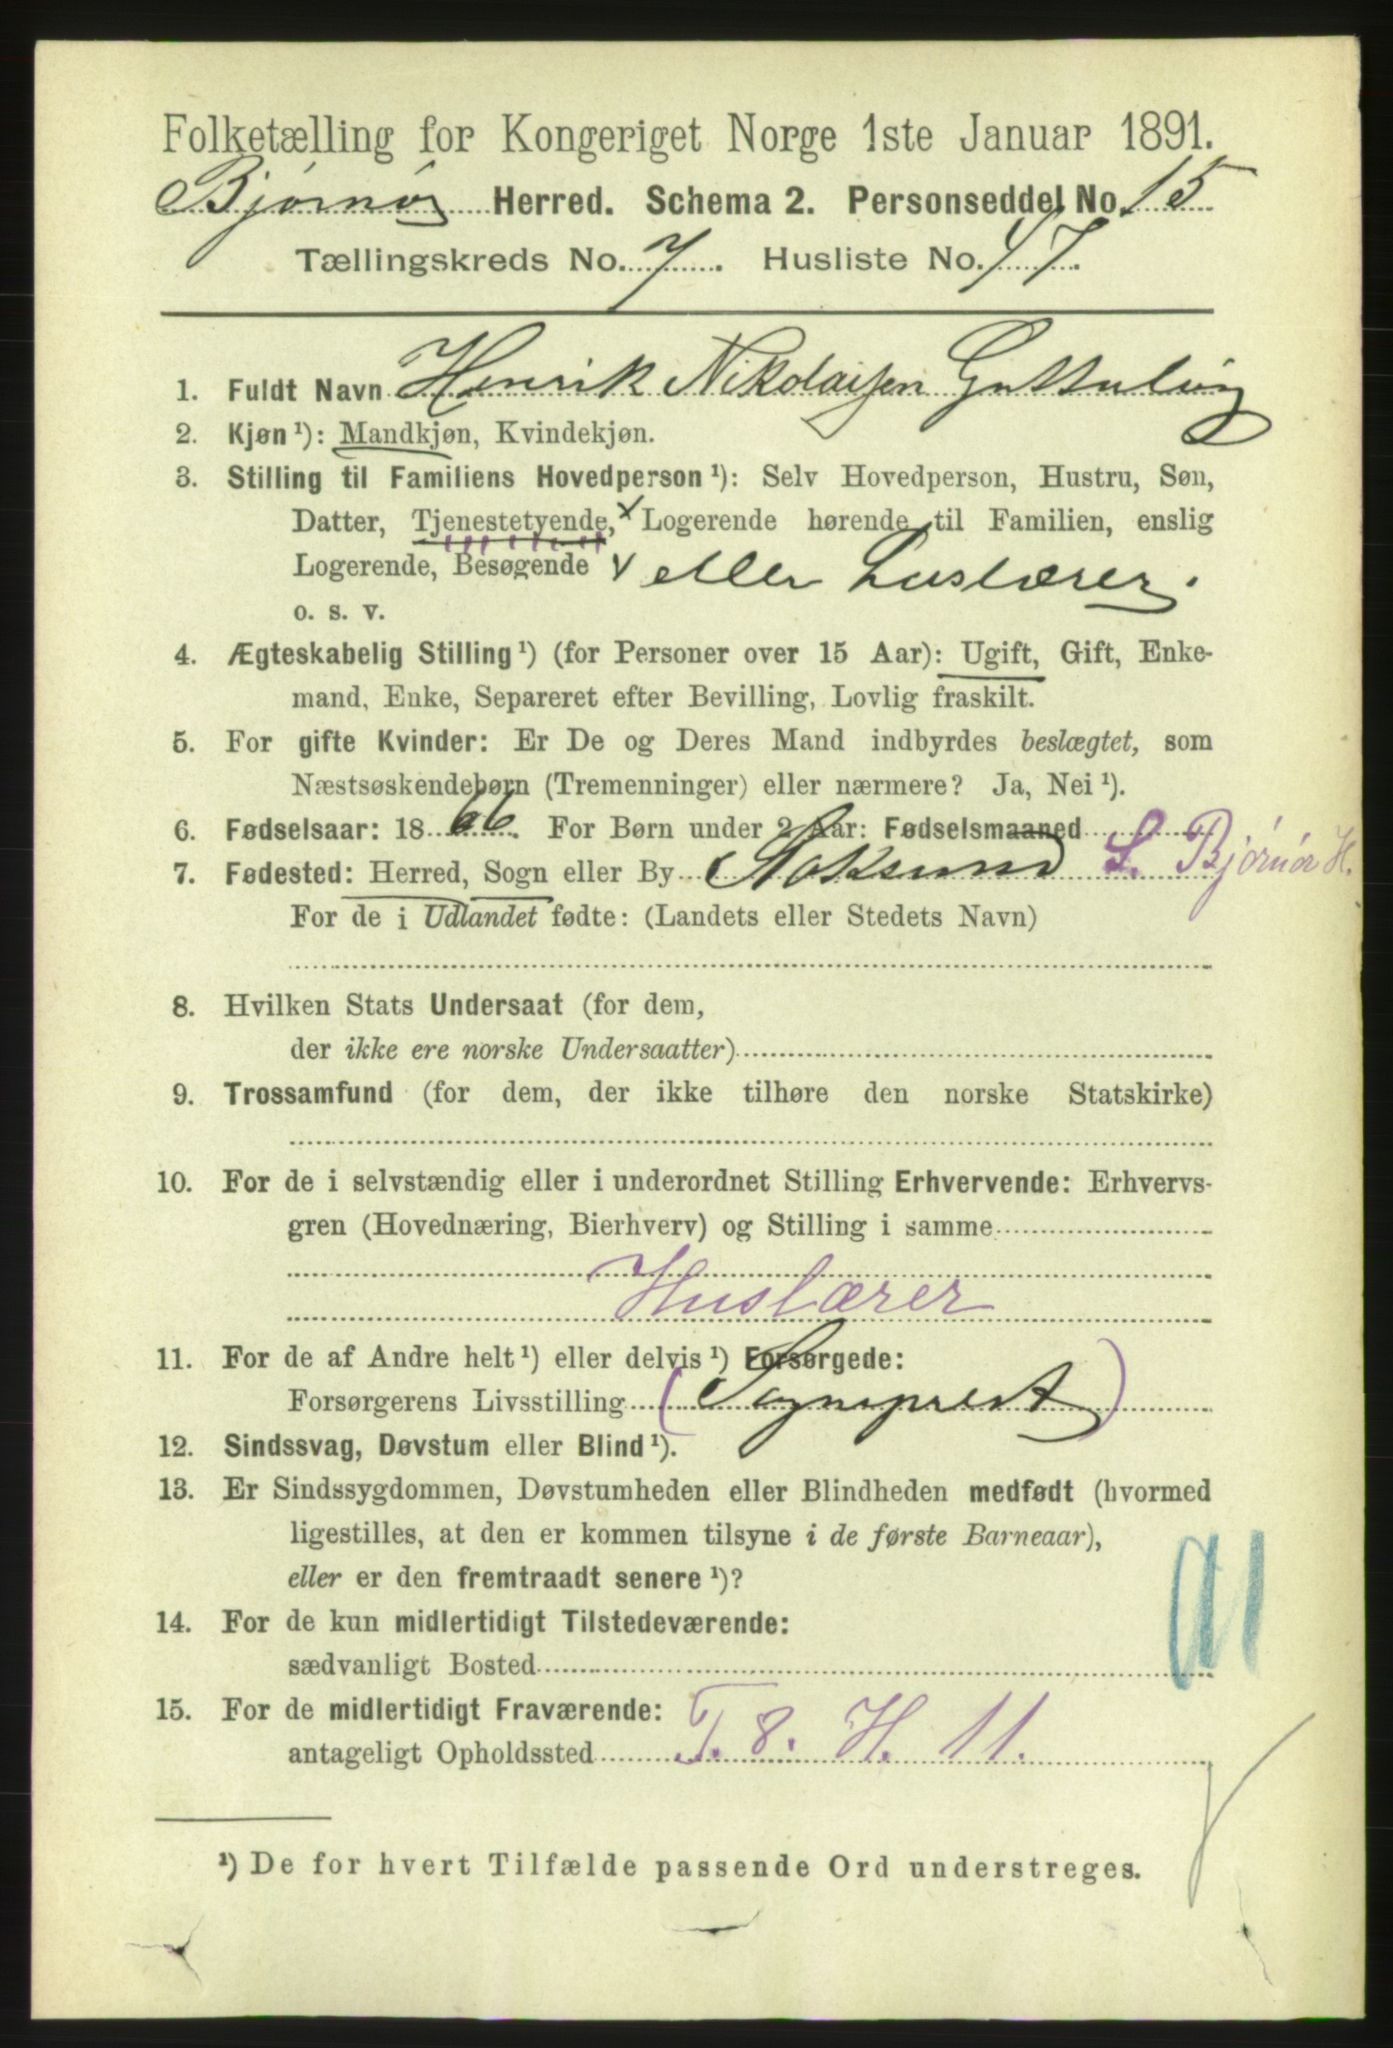 Folketælling for Kongeriget Norge 1ste Januar 1891.
Bjørnør Herred. Schema 2. Personseddel No. 15
Tællingskreds No. 7. Husliste No. 47.
1. Fuldt Navn Henrik Nikolaisen
2. Kjøn ¹): Mandkjøn, Kvindekjøn.
3. Stilling til Familiens Hovedperson ¹): Selv Hovedperson, Hustru, Søn,
Datter, Tjenestetyende, × Logerende hørende til Familien, enslig
Logerende, Besøgende × eller Huslærer.
o. s. v.
4. Ægteskabelig Stilling ¹) (for Personer over 15 Aar): Ugift, Gift, Enke-
mand, Enke, Separeret efter Bevilling, Lovlig fraskilt.
5. For gifte Kvinder: Er De og Deres Mand indbyrdes beslægtet, som
Næstsøskendebørn (Tremenninger) eller nærmere? Ja, Nei ¹).
6. Fødselsaar: 1866. For Børn under 2 Aar: Fødselsmaaned
7. Fødested: Herred, Sogn eller By Stoksund S. Bjørnør H.
For de i Udlandet fødte: (Landets eller Stedets Navn)
8. Hvilken Stats Undersaat (for dem,
der ikke ere norske Undersaatter)
9. Trossamfund (for dem, der ikke tilhøre den norske Statskirke)
10. For de i selvstændig eller i underordnet Stilling Erhvervende: Erhvervs-
gren (Hovednæring, Bierhverv) og Stilling i samme
Huslærer
11. For de af Andre helt ¹) eller delvis ¹) Forsørgede:
Forsørgerens Livsstilling (Sogneprest)
12. Sindssvag, Døvstum eller Blind ¹).
13. Er Sindssygdommen, Døvstumheden eller Blindheden medfødt (hvormed
ligestilles, at den er kommen tilsyne i de første Barneaar),
eller er den fremtraadt senere ¹)?
14. For de kun midlertidigt Tilstedeværende:
sædvanligt Bosted
15. For de midlertidigt Fraværende:
antageligt Opholdssted T. 8. H. 11.
¹) De for hvert Tilfælde passende Ord understreges.